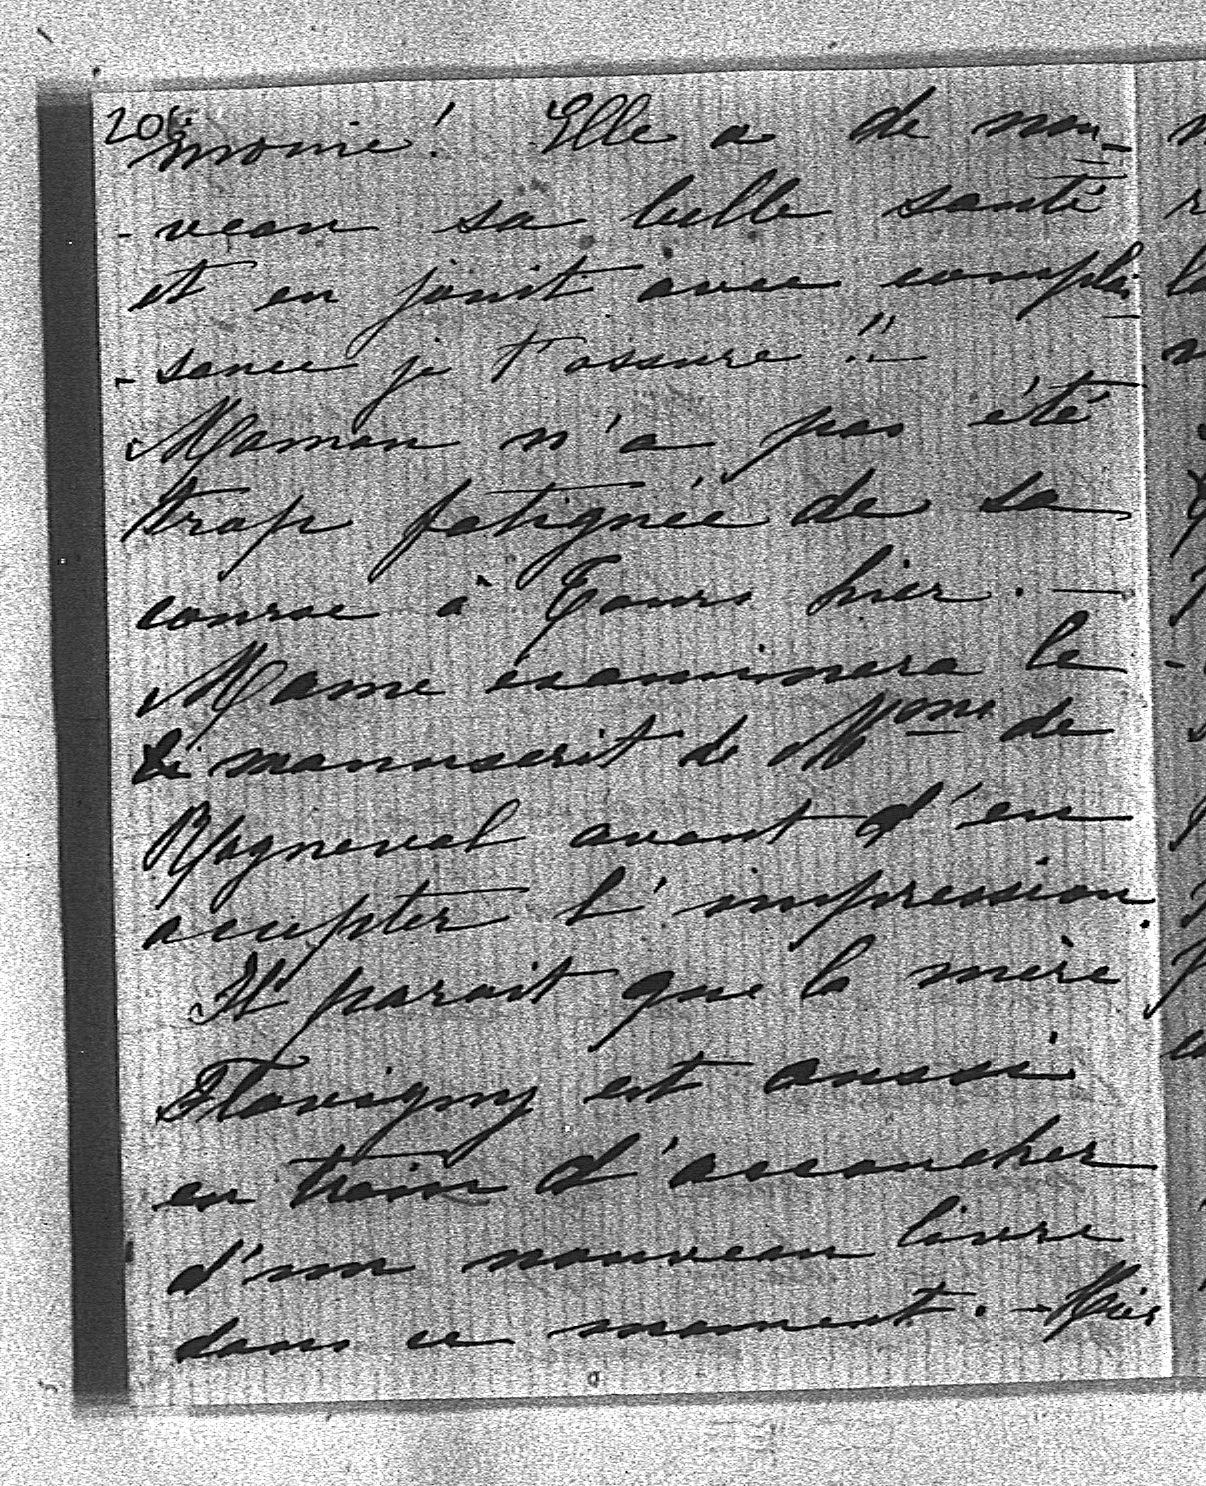 206
monie ! Elle a de nou-
-veau sa belle santé
et en jouit avec complai-
-sance je t'assure !! —
Maman n'a pas été
trop fatiguée de sa
course à Tours hier. —
Mame examinera le
manuscrit de Mme de
avant d'en
accepter l'impression.
Il parait que la mère
Flavigny est aussi
en train d'accoucher
d'un nouveau livre
dans ce moment. — Hier